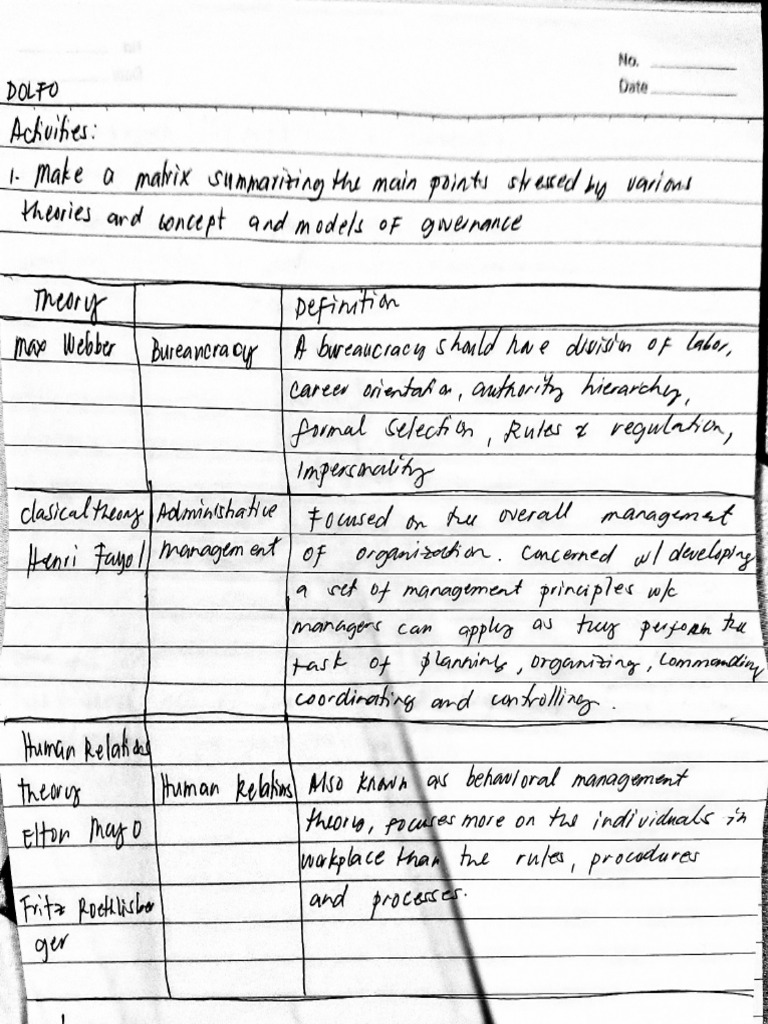 No.
Date
DOLFO
Activities:
1. Make a matrix summarizing the main points stressed by various
theories and concept and models of governance
Theory Definition
max Webber Bureancracy A bureaucracy should have division of labor,
career orientation, authority hierarchy,
formal selection, Rules & regulation,
impersonality
clasical theory Administrative Focused on the overall management
Henri Fayol management of organization. concerned w/ developing
a set of management principles w/c
managers can apply as they perform the
task of planning, organizing, commanding
coordinating and controlling.
Human Relations
theory Human Relations Also known as behavioral management
Elton Mayo theory, focuses more on the individuals in
workplace than the rules, procedures
Fritz Roethlisber and processes.
ger